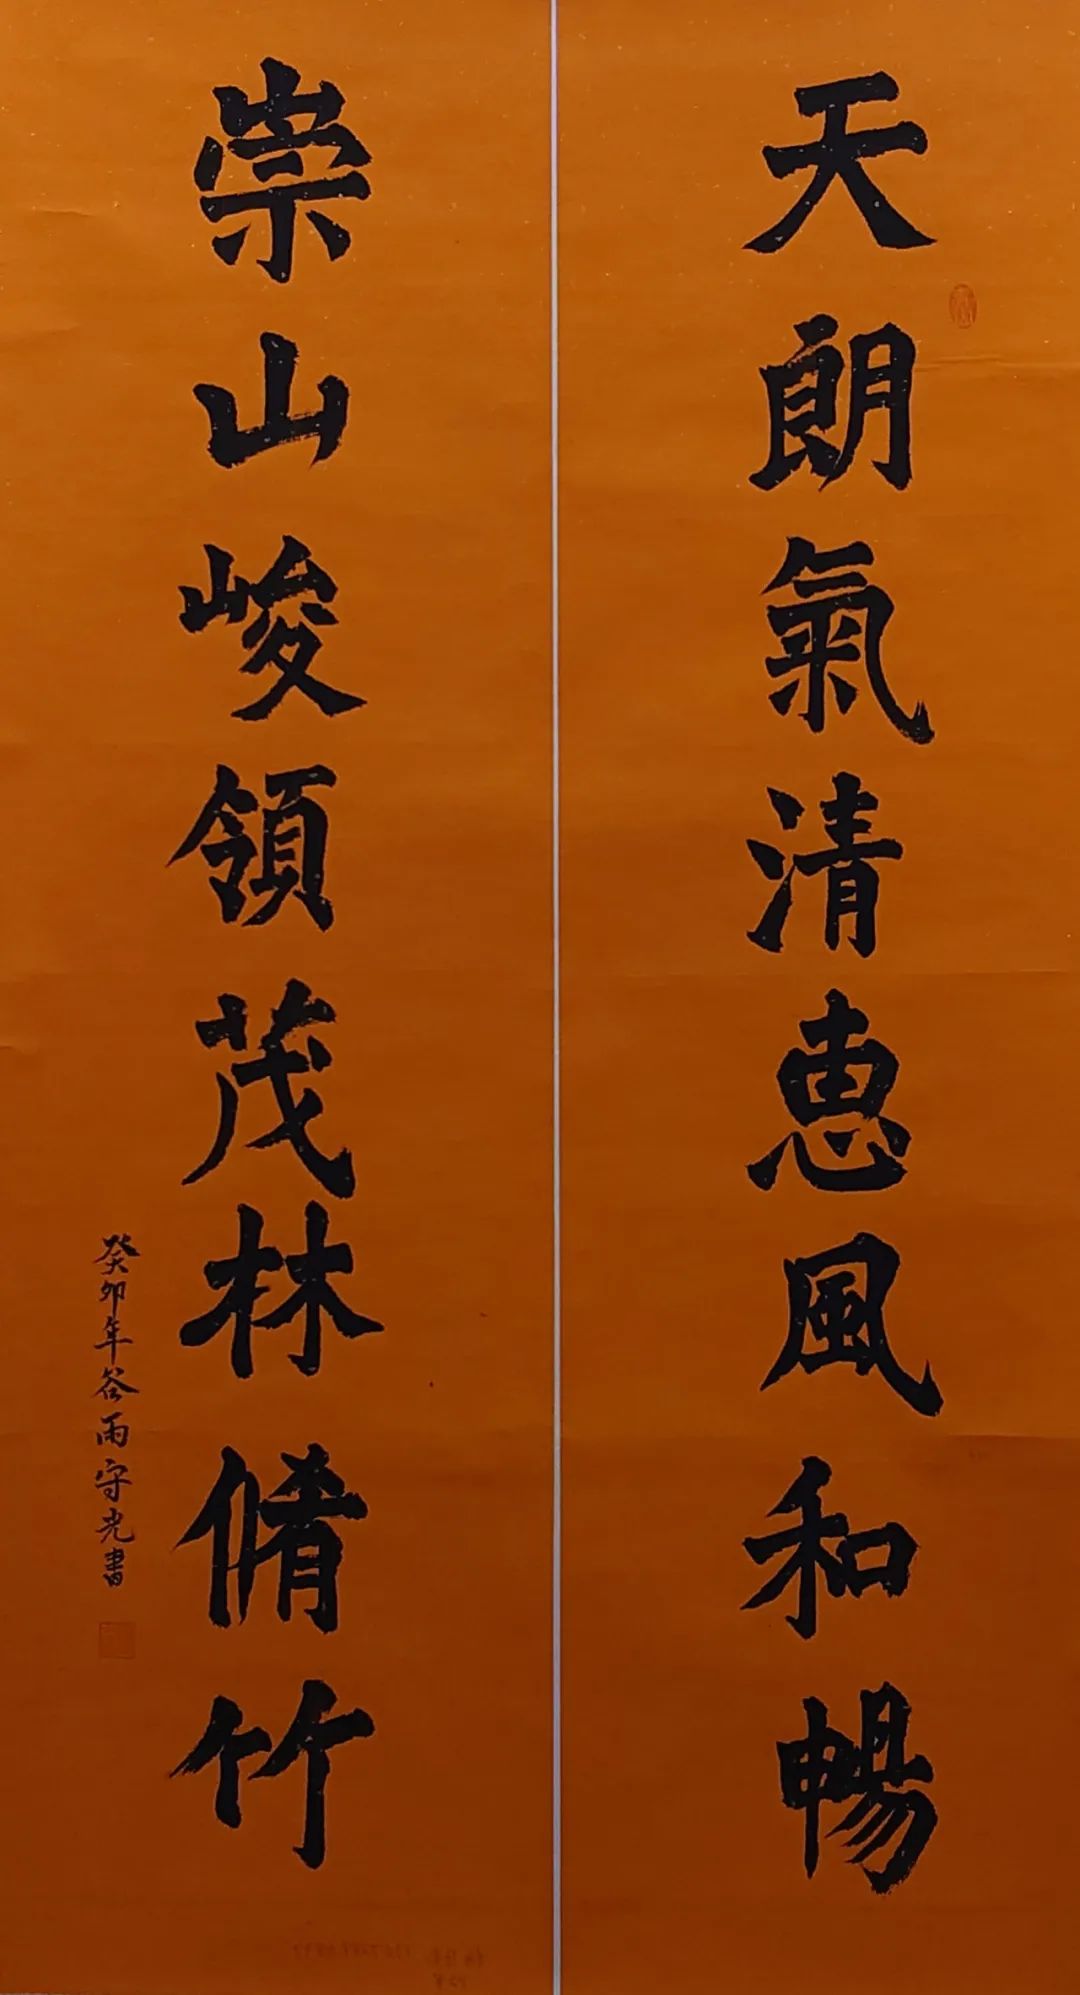 天朗氣清惠風和暢
崇山峻領茂林脩竹
癸卯年谷雨守光書